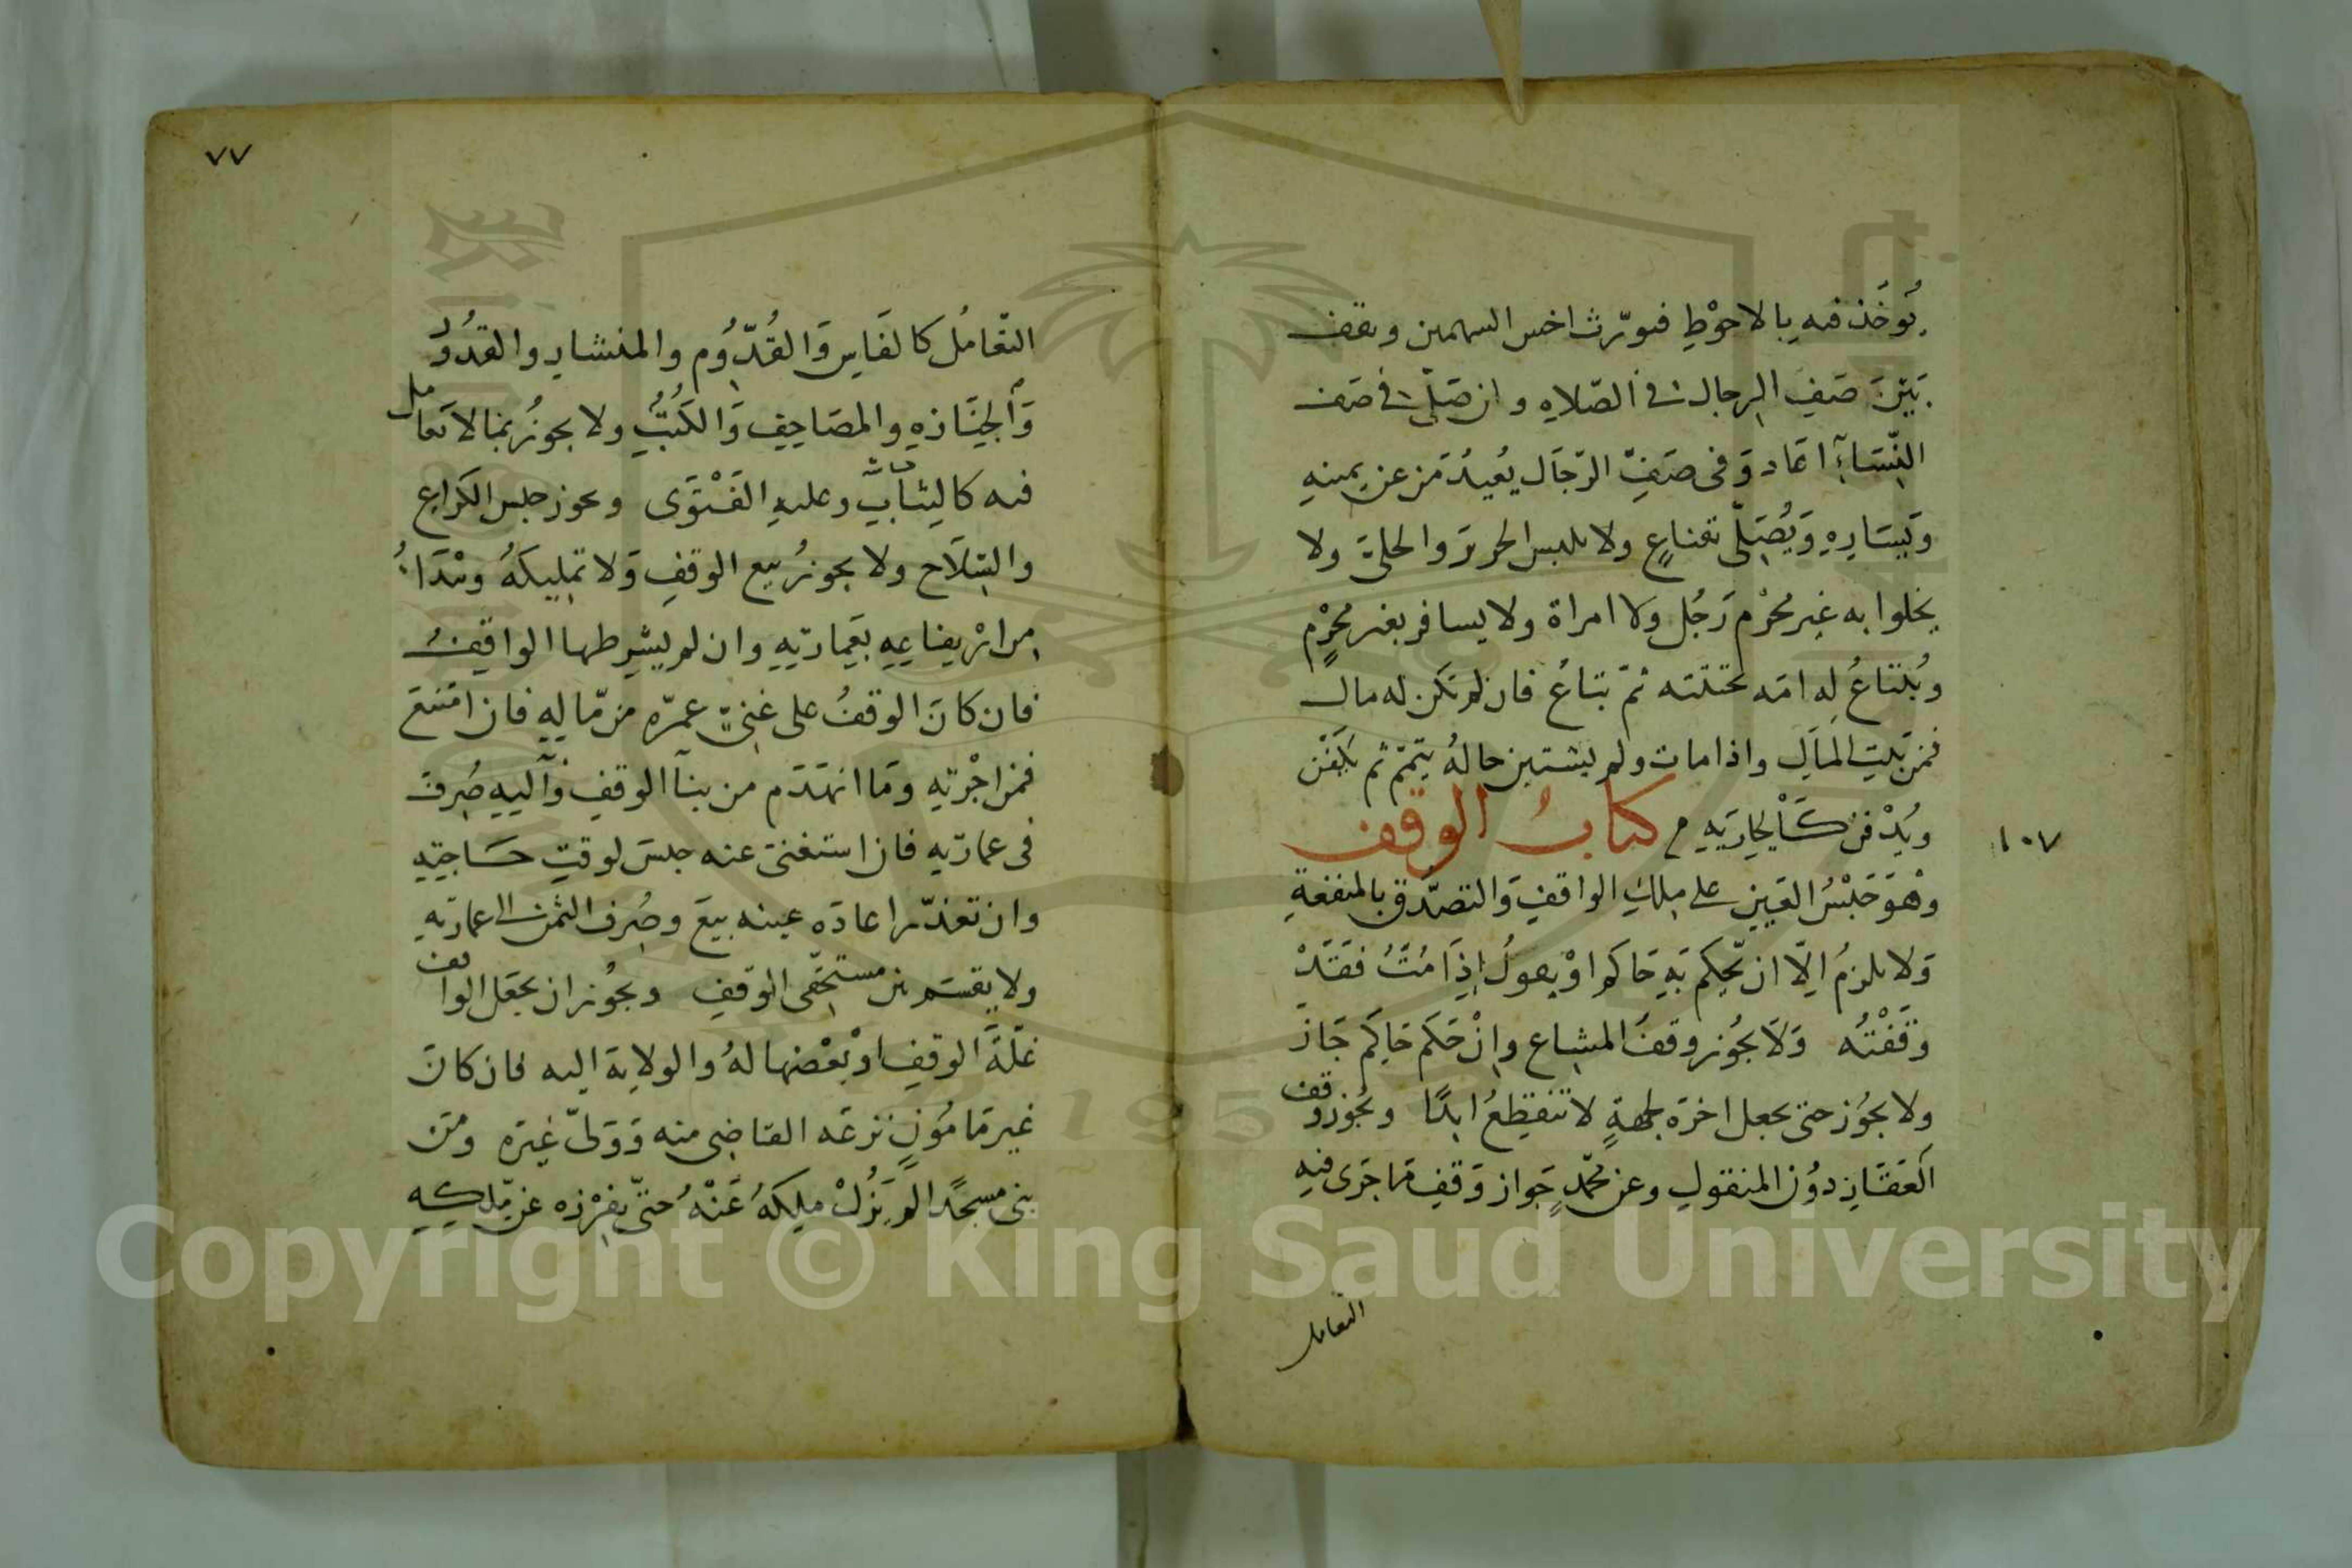 يُوخَذ فيه بالاحوْطِ فيورّث اخس السهمين ويقف
بَيْنَ صَفِ الرجال في الصّلاه وان صَلّى في صَف
النّسَآءِ اعَاد وَفى صَفِّ الرّجَال يُعيدُ مَن عن يمينهِ
وَيَسَارِهِ وَيُصَلّى بقناعٍ ولا يلبس الحرير والحلىّ ولا
يخلوا به غير محْرْم رَجُل ولا امراة ولا يسافر بغير محْرمٍ
ويُبْتاعُ له امَه تختنه ثمّ تباعُ فان لم تكن له مال
فمن بَيتِ المال واذا مات ولم يستبين حالهُ يتمّم ثم يكَفّن
ويُدْفن كَالجاريَهِ كتابُ الوقف
١٠٧
وهْوَ حَبْسُ العَيِن على ملِك الواقفِ وَالتصدّق بالمنفعةِ
وَلا يلزمُ اِلّا ان يَحكم بَهِ حَاكم اوْ يقولُ اِذَا مُتُّ فقَدْ
وقَفْتُه وَلَا يجُوز وقفُ المشاع وانْ حَكم حَاكِم جَاز
ولا يجُوز حتى يجعل اخرَه لجهةٍ لا تنقطِعُ ابدًا ويجُوز وقف
العَقَارِ دوُن المنقولِ وعن محمّدٍ جَواز وَقفِ مَا جَرى فيهِ
التعامل
٧٧
التّعَامُل كالفَاسِ وَالقُدّوُم والمنشار والقدُوُر
وَالجِنَازهِ والمصَاحِفِ وَالكُتُبِ ولا يجوزُ بمَا لا تعامل
فيه كالثيابِ وعليهِ الفَتْوَى ويجوز حبس الكراع
والسّلَاح ولا يجوزُ بيع الوقفِ وَلا تمليكَهُ ويبْدَاءُ
من ارْيفاعِهِ بعَمِارتهِ وان لم يشرطها الواقفُ
فان كانَ الوقفُ على غنىّ عمرّه من مّالِهِ فان امْتنعَ
فمن اجْرتهِ وَمَا انهدَم من بنآ الوقفِ وَآلتِهِ صُرِفَ
فى عمارتهِ فان استغنى عنه حبسَ لوقتِ حَاجتِهِ
وان تعذّر اعادَه عينه بيعَ وصُرف الثمن الى عمارتهِ
ولا يقسَم بين مستحقّى الوقفِ ويجُوز ان يجعَل الواقف
غلّةَ الوقفِ اوْ بعْضها لهُ والولاية اليه فان كانَ
غيرَ مَامُونٍ نزعَه القاضِى منه وَوَلىّ غيَره ومَن
بنى مسجدًا لَم يَزُلْ ملكَهُ عَنْهُ حتّى يفرْزه عن مّلكِهِ
Copyright © King Saud University